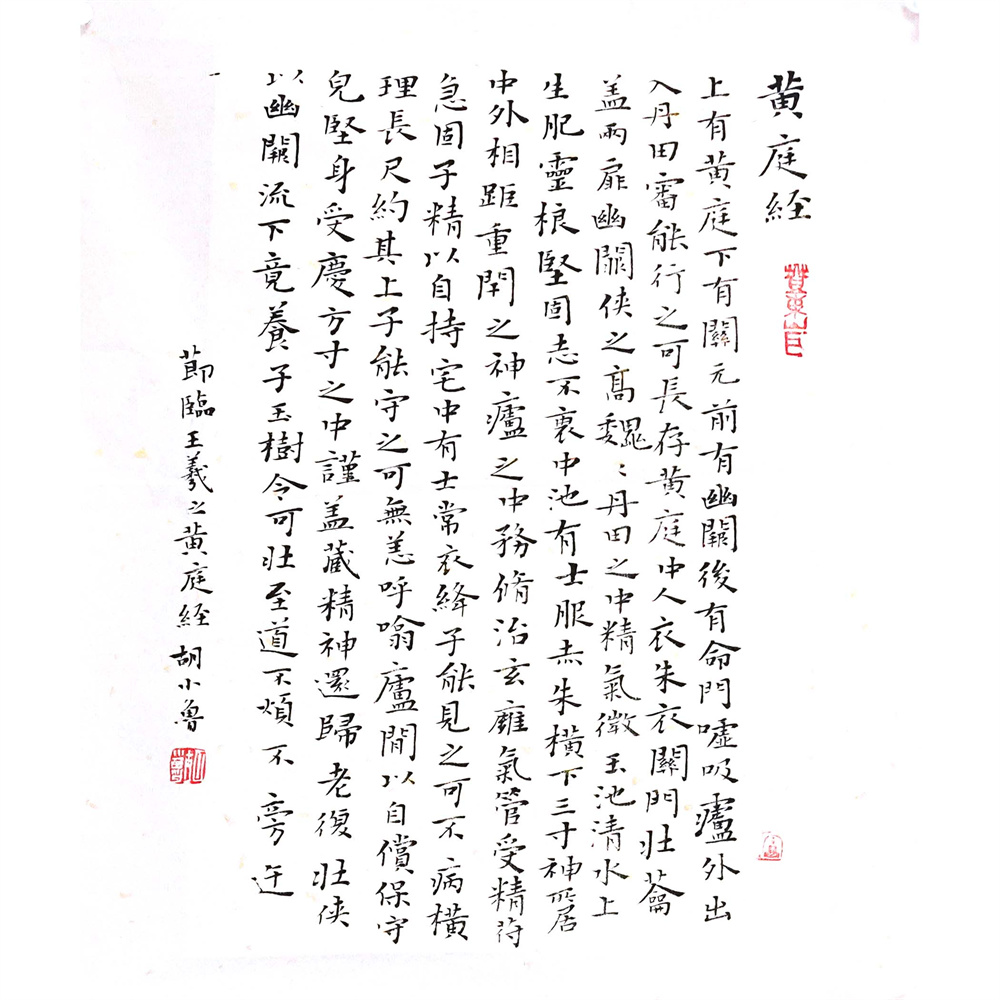 黄庭经
上有黄庭下有關元前有幽闕後有命門嘘吸廬外出
入丹田審能行之可長存黄庭中人衣朱衣關門壯蘥
盖兩扉幽關侠之高魏：丹田之中精氣微玉池清水上
生肥靈根堅固志不衰中池有士服赤朱横下三寸神所居
中外相距重閇之神廬之中務脩治玄癰氣管受精苻
急固子精以自持宅中有士常衣絳子能見之可不病横
理長尺約其上子能守之可無恙呼噏廬間以自償保守
皃堅身受慶方寸之中謹盖藏精神還歸老復壯侠
以幽闕流下竟養子玉樹令可壯至道不煩不旁迕
莭臨王羲之黄庭经 胡小魯